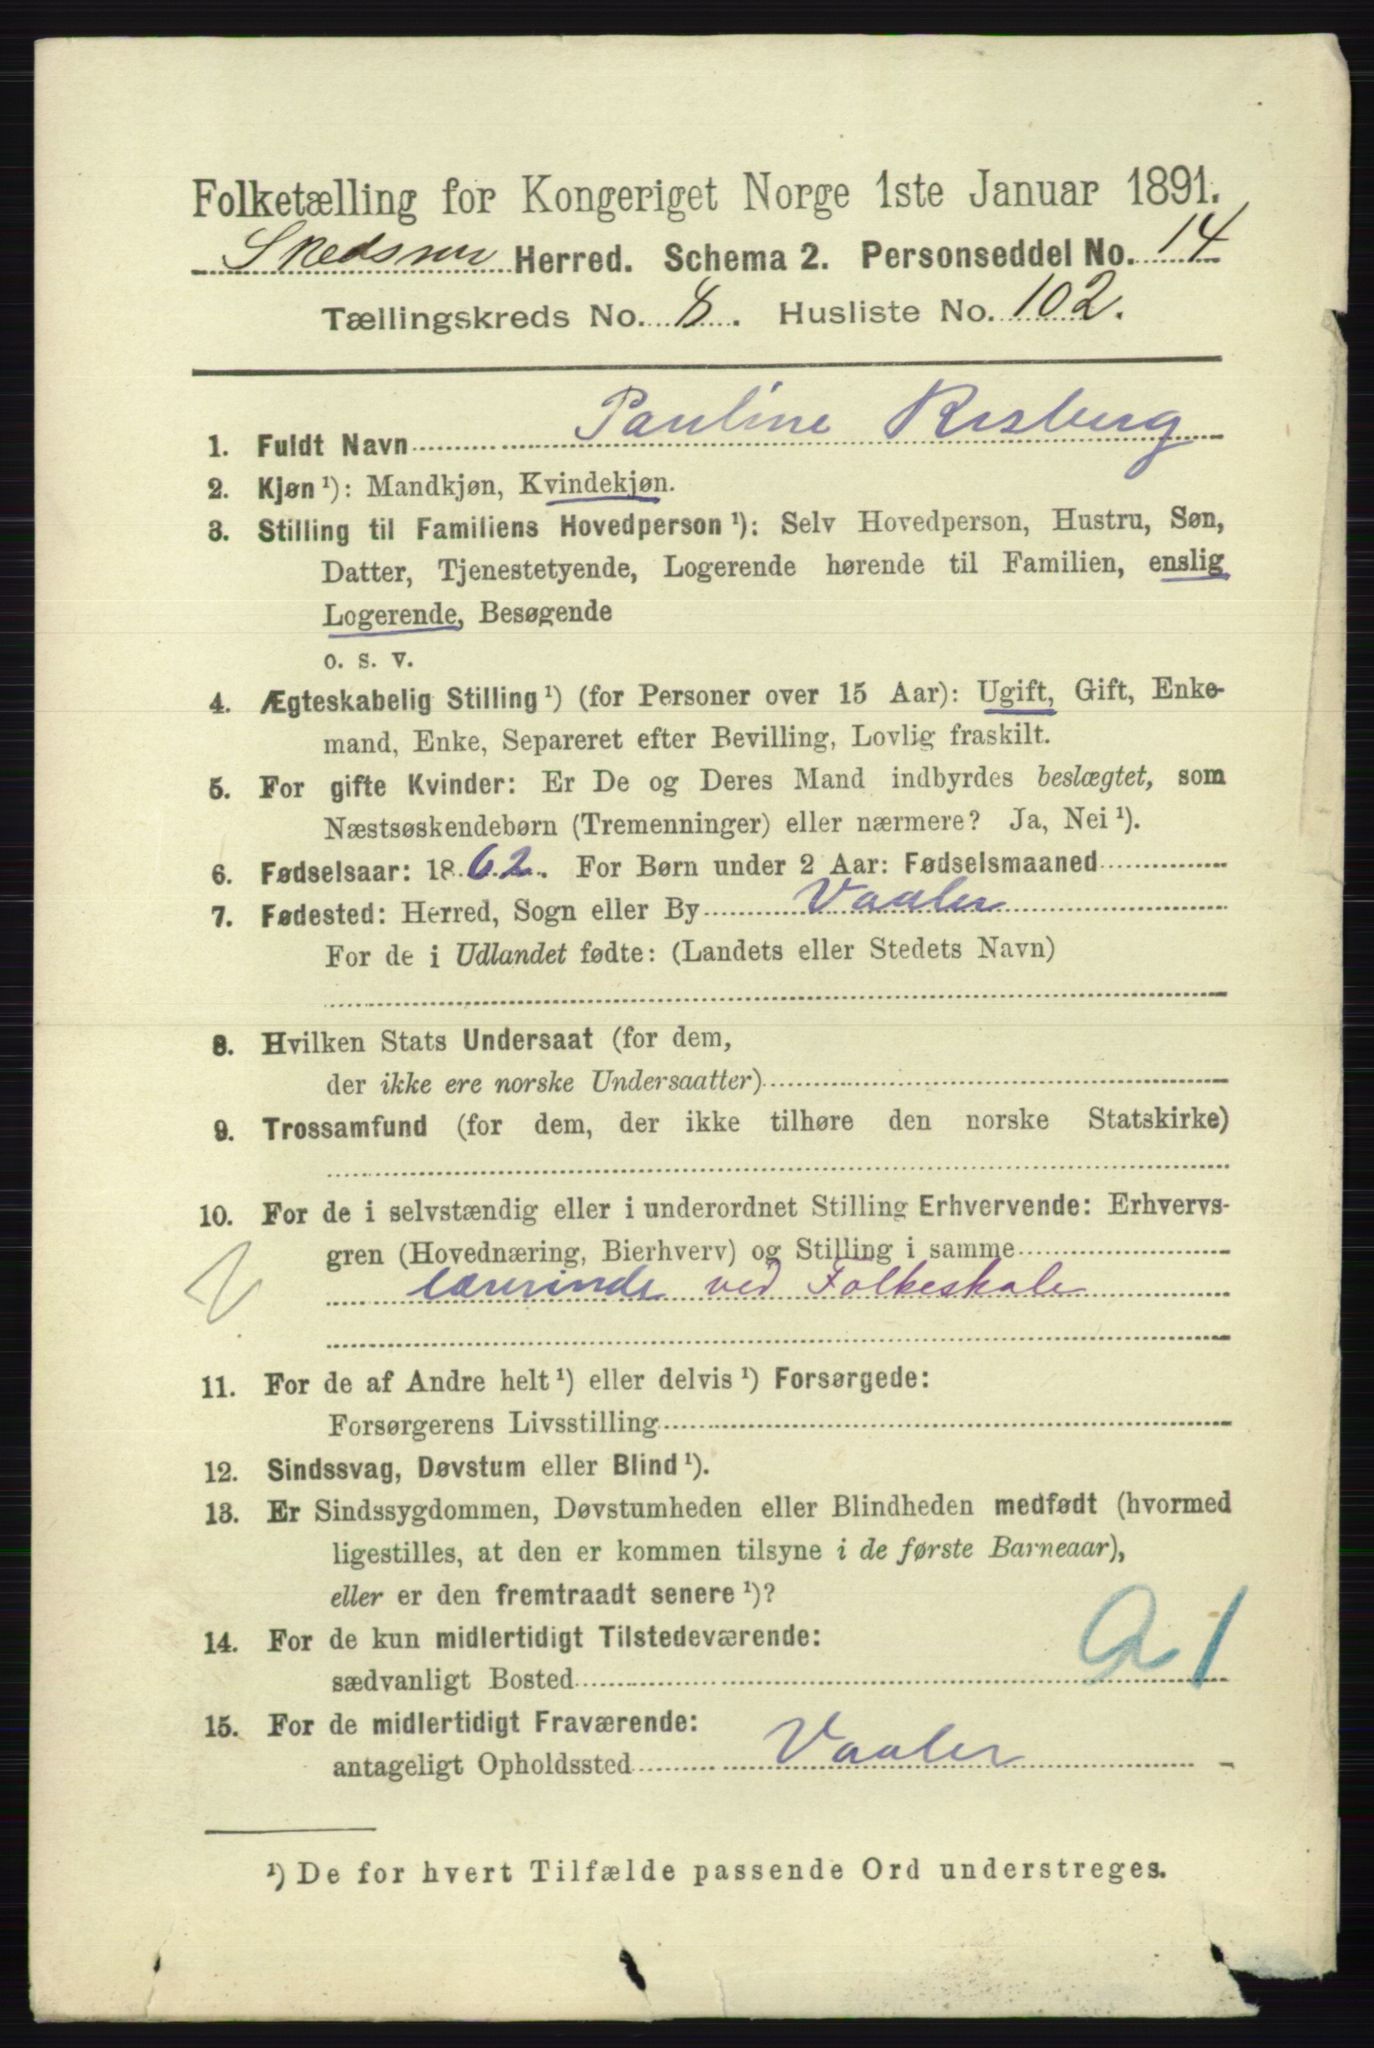 Folketælling for Kongeriget Norge 1ste Januar 1891.
Skedsmo Herred. Schema 2. Personseddel No. 14
Tællingskreds No. 8. Husliste No. 102.
1. Fuldt Navn Pauline Risberg
2. Kjøn ¹): Mandkjøn, Kvindekjøn.
3. Stilling til Familiens Hovedperson ¹): Selv Hovedperson, Hustru, Søn,
Datter, Tjenestetyende, Logerende hørende til Familien, enslig
Logerende, Besøgende
o. s. v.
4. Ægteskabelig Stilling ¹) (for Personer over 15 Aar): Ugift, Gift, Enke-
mand, Enke, Separeret efter Bevilling, Lovlig fraskilt.
5. For gifte Kvinder: Er De og Deres Mand indbyrdes beslægtet, som
Næstsøskendebørn (Tremenninger) eller nærmere? Ja, Nei ¹).
6. Fødselsaar: 1862. For Børn under 2 Aar: Fødselsmaaned
7. Fødested: Herred, Sogn eller By Vaaler
For de i Udlandet fødte: (Landets eller Stedets Navn)
8. Hvilken Stats Undersaat (for dem,
der ikke ere norske Undersaatter)
9. Trossamfund (for dem, der ikke tilhøre den norske Statskirke)
10. For de i selvstændig eller i underordnet Stilling Erhvervende: Erhvervs-
gren (Hovednæring, Bierhverv) og Stilling i samme
Lærerinde ved Folkeskole
11. For de af Andre helt ¹) eller delvis ¹) Forsørgede:
Forsørgerens Livsstilling
12. Sindssvag, Døvstum eller Blind ¹).
13. Er Sindssygdommen, Døvstumheden eller Blindheden medfødt (hvormed
ligestilles, at den er kommen tilsyne i de første Barneaar),
eller er den fremtraadt senere ¹)?
14. For de kun midlertidigt Tilstedeværende:
sædvanligt Bosted
15. For de midlertidigt Fraværende:
antageligt Opholdssted Vaaler
¹) De for hvert Tilfælde passende Ord understreges.